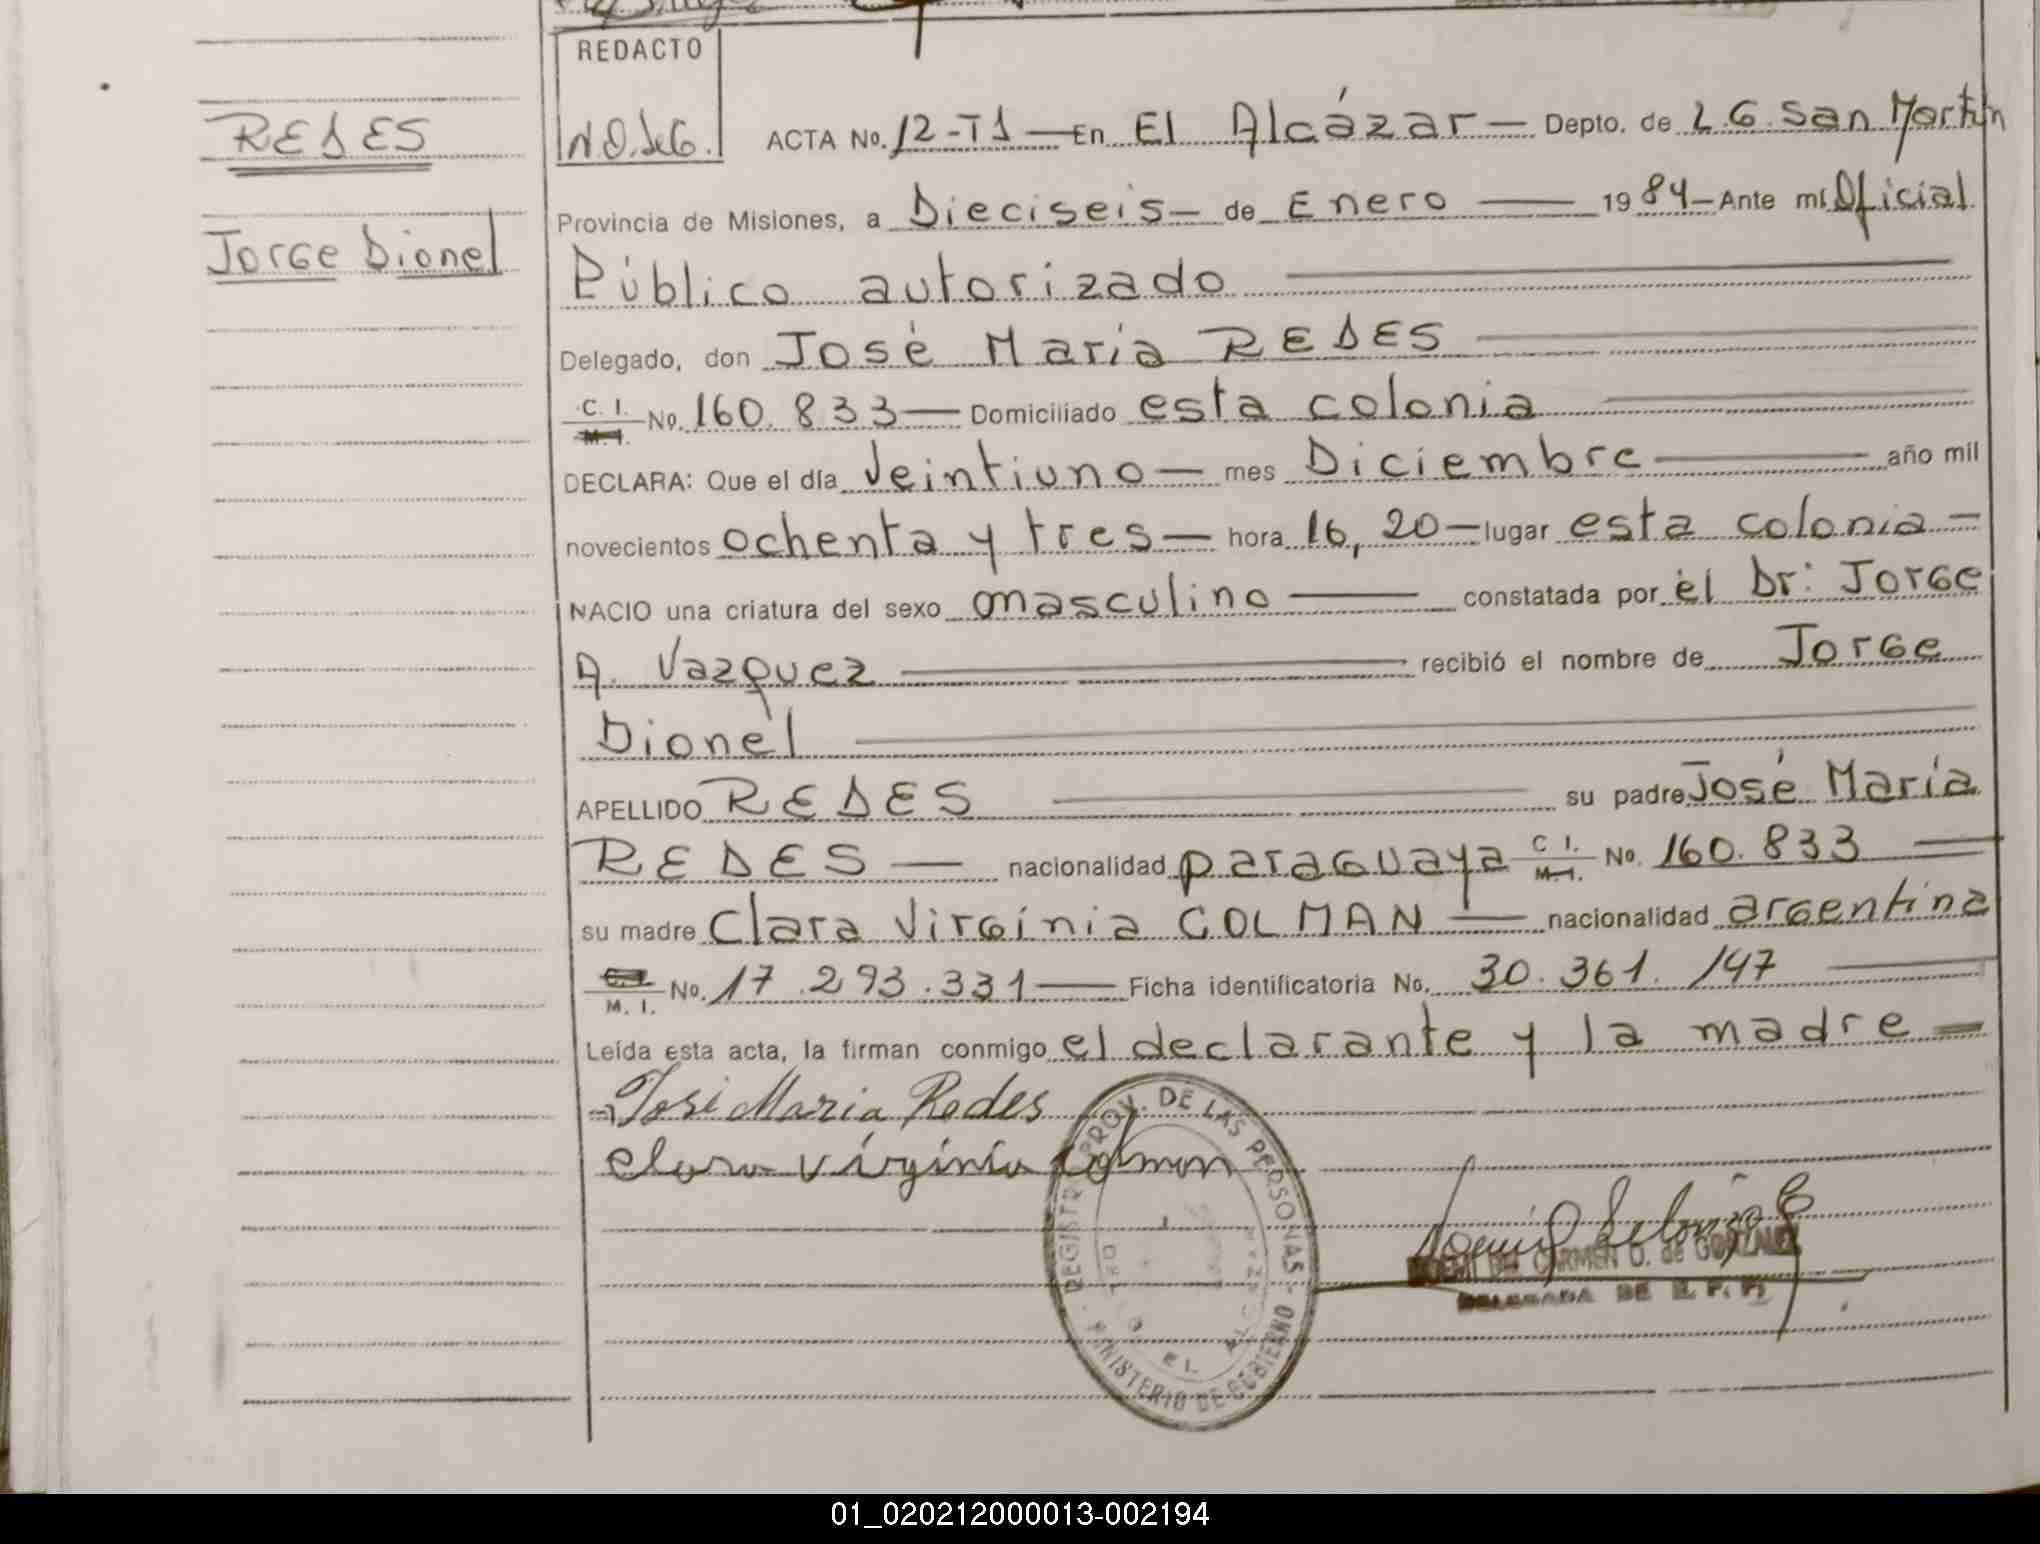 REDACTO
N.O.deG.
REDES
Jorge Dionel
ACTA No. 12-T1 — En El Alcázar — Depto. de L.G. San Martín
Provincia de Misiones, a Dieciseis — de Enero — 1984 — Ante mí Oficial
Público autorizado
Delegado, don José María REDES
C. I. M. I. No. 160.833 — Domiciliado esta colonia
DECLARA: Que el día Veintiuno — mes Diciembre — año mil
novecientos ochenta y tres — hora 16,20 — lugar esta colonia —
NACIO una criatura del sexo masculino — constatada por el Dr: Jorge
A. Vazquez — recibió el nombre de Jorge
Dionel
APELLIDO REDES — su padre José María
REDES — nacionalidad paraguaya C I. M. I. No. 160.833 —
su madre Clara Virginia COLMAN — nacionalidad argentina
M. I. No. 17.293.331 — Ficha identificatoria No. 30.361.147 —
Leída esta acta, la firman conmigo el declarante y la madre —
José Maria Redes
clara virginia colman
REGISTRO PROV. DE LAS PERSONAS
EL ALCAZAR
MINISTERIO DE GOBIERNO
NOEMI DEL CARMEN O. de GONZALEZ
DELEGADA DE R. P. P.
01_020212000013-002194